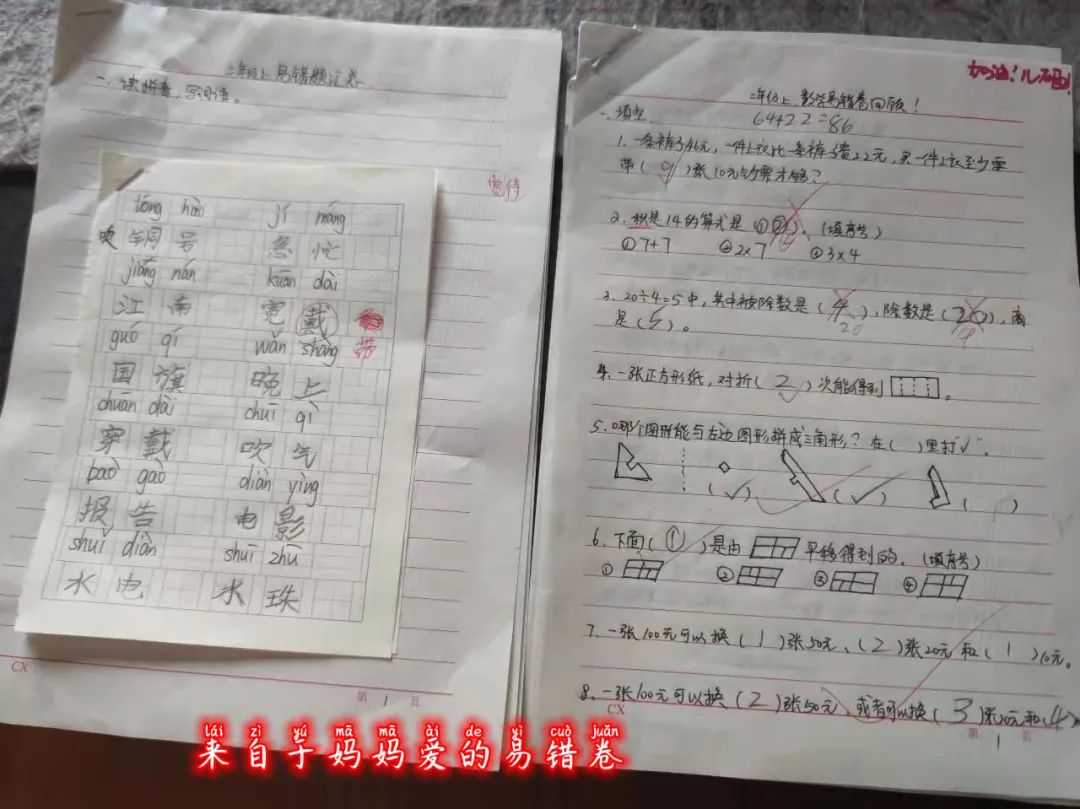 二年级上易错题汇总
一、读拼音,写词语。
宽待
tóng hào jí máng
吹铜号 急忙
jiāng nán kuān dài
江南 宽戴
带
guó qí wǎn shàng
国旗 晚上
chuān dài chuī qì
穿戴 吹气
bào gào diàn yǐng
报告 电影
shuǐ diàn shuǐ zhū
水电 水珠
CX
第 1 页
加油!
二年级上 数学易错卷回顾!
一、填空
64+22=86
1. 一条裤子46元,一件上衣比一条裤子贵22元,买一件上衣至少要
带(9)张10元钞票才够?
2. 积是14的算式是(①②)。(填序号)
①7+7 ②2×7 ③3×4
3. 20÷4=5中,其中被除数是(4),除数是(20),商
20 4
是(5)。
4. 一张正方形纸,对折(2)次能得到 。
5. 哪个图形能与左边图形拼成三角形?在( )里打"√"。
(√) (√) ( )
6. 下面(①)是由 平移得到的。(填序号)
① ② ③ ④
7. 一张100元可以换(1)张50元、(2)张20元和(1)10元。
8. 一张100元可以换(2)张50元,或者可以换(3)张20元和(4)
CX
第 1 页
lái zì yú mā mā ài de yì cuò juǎn
来自于妈妈爱的易错卷